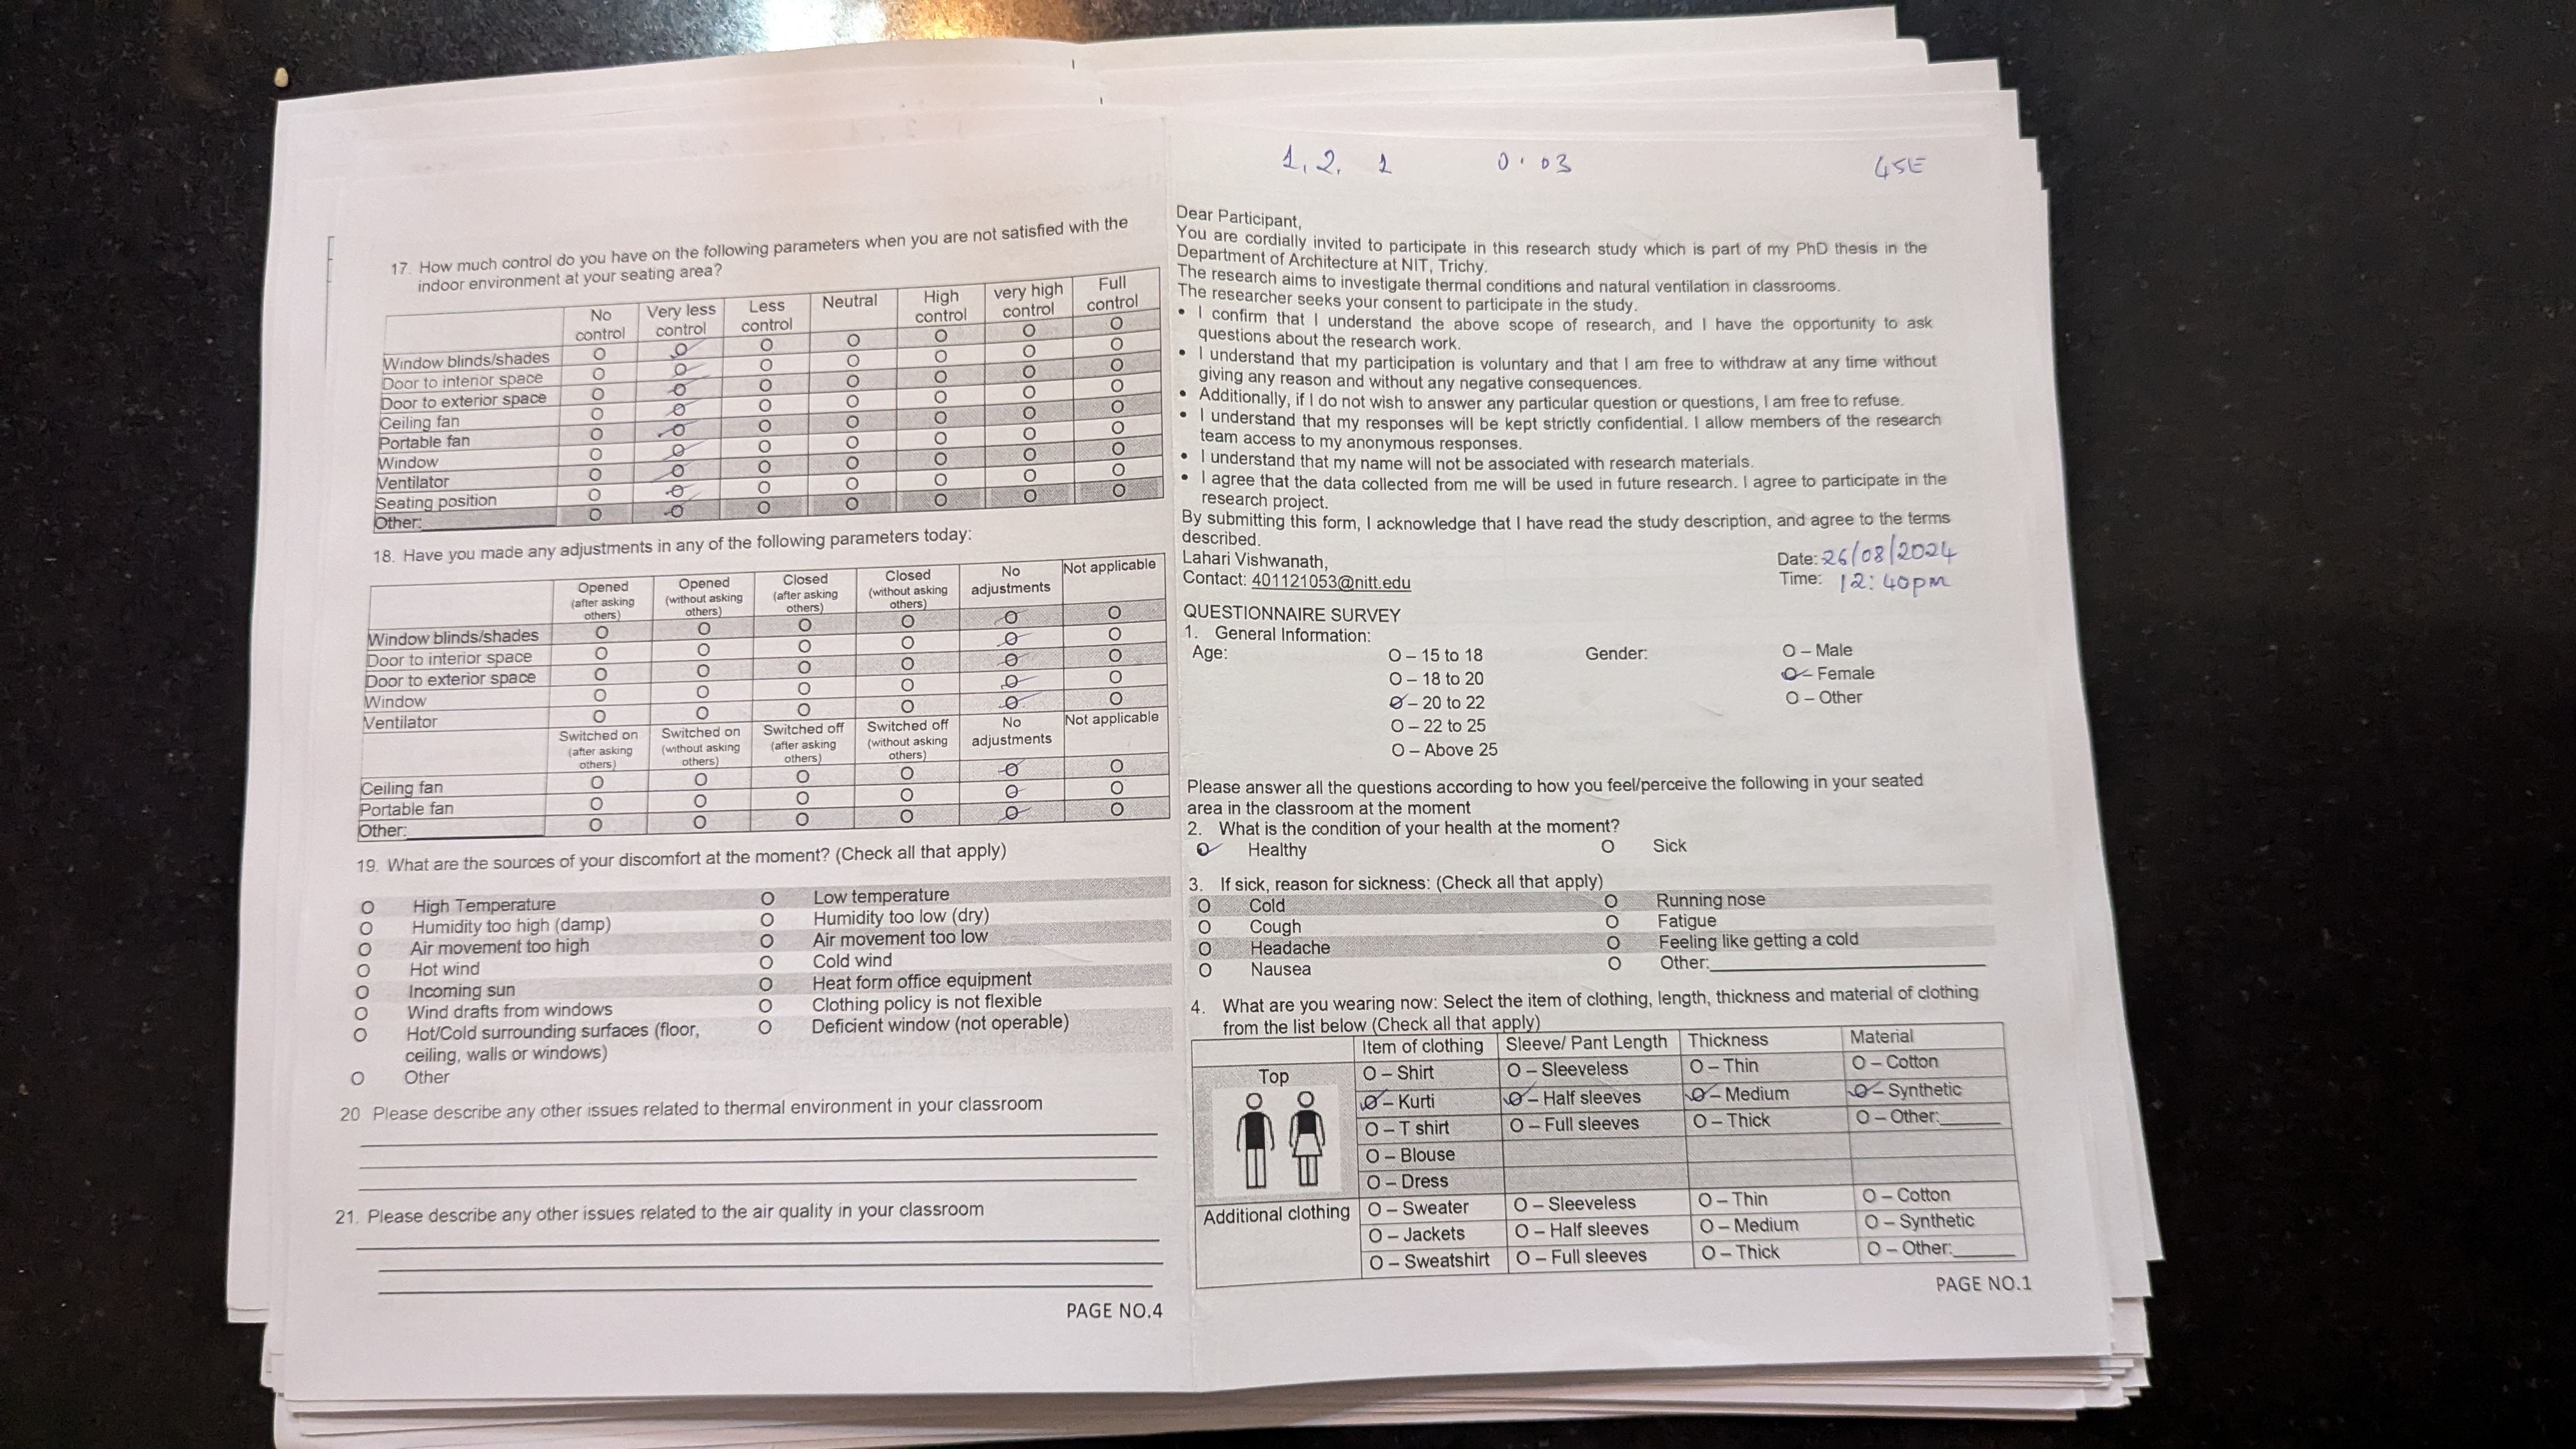 17. How much control do you have on the following parameters when you are not satisfied with the
indoor environment at your seating area?
No control Very less control Less control Neutral High control very high control Full control
Window blinds/shades O O O O O O O
Door to interior space O O O O O O O
Door to exterior space O O O O O O O
Ceiling fan O O O O O O O
Portable fan O O O O O O O
Window O O O O O O O
Ventilator O O O O O O O
Seating position O O O O O O O
Other:________ O O O O O O O
18. Have you made any adjustments in any of the following parameters today:
Opened (after asking others) Opened (without asking others) Closed (after asking others) Closed (without asking others) No adjustments Not applicable
Window blinds/shades O O O O O O
Door to interior space O O O O O O
Door to exterior space O O O O O O
Window O O O O O O
Ventilator O O O O O O
Switched on (after asking others) Switched on (without asking others) Switched off (after asking others) Switched off (without asking others) No adjustments Not applicable
Ceiling fan O O O O O O
Portable fan O O O O O O
Other:________ O O O O O O
19. What are the sources of your discomfort at the moment? (Check all that apply)
O High Temperature O Low temperature
O Humidity too high (damp) O Humidity too low (dry)
O Air movement too high O Air movement too low
O Hot wind O Cold wind
O Incoming sun O Heat form office equipment
O Wind drafts from windows O Clothing policy is not flexible
O Hot/Cold surrounding surfaces (floor, O Deficient window (not operable)
ceiling, walls or windows)
O Other
20 Please describe any other issues related to thermal environment in your classroom
21. Please describe any other issues related to the air quality in your classroom
PAGE NO.4
1, 2, 1 0.03 45E
Dear Participant,
You are cordially invited to participate in this research study which is part of my PhD thesis in the
Department of Architecture at NIT, Trichy.
The research aims to investigate thermal conditions and natural ventilation in classrooms.
The researcher seeks your consent to participate in the study.
• I confirm that I understand the above scope of research, and I have the opportunity to ask
questions about the research work.
• I understand that my participation is voluntary and that I am free to withdraw at any time without
giving any reason and without any negative consequences.
• Additionally, if I do not wish to answer any particular question or questions, I am free to refuse.
• I understand that my responses will be kept strictly confidential. I allow members of the research
team access to my anonymous responses.
• I understand that my name will not be associated with research materials.
• I agree that the data collected from me will be used in future research. I agree to participate in the
research project.
By submitting this form, I acknowledge that I have read the study description, and agree to the terms
described.
Lahari Vishwanath, Date: 26/08/2024
Contact: 401121053@nitt.edu Time: 12:40pm
QUESTIONNAIRE SURVEY
1. General Information:
Age: O – 15 to 18 Gender: O – Male
O – 18 to 20 O – Female
O – 20 to 22 O – Other
O – 22 to 25
O – Above 25
Please answer all the questions according to how you feel/perceive the following in your seated
area in the classroom at the moment
2. What is the condition of your health at the moment?
O Healthy O Sick
3. If sick, reason for sickness: (Check all that apply)
O Cold O Running nose
O Cough O Fatigue
O Headache O Feeling like getting a cold
O Nausea O Other:________
4. What are you wearing now: Select the item of clothing, length, thickness and material of clothing
from the list below (Check all that apply)
Item of clothing Sleeve/ Pant Length Thickness Material
Top O – Shirt O – Sleeveless O – Thin O – Cotton
O – Kurti O – Half sleeves O – Medium O – Synthetic
O – T shirt O – Full sleeves O – Thick O – Other:______
O – Blouse
O – Dress
Additional clothing O – Sweater O – Sleeveless O – Thin O – Cotton
O – Jackets O – Half sleeves O – Medium O – Synthetic
O – Sweatshirt O – Full sleeves O – Thick O – Other:______
PAGE NO.1